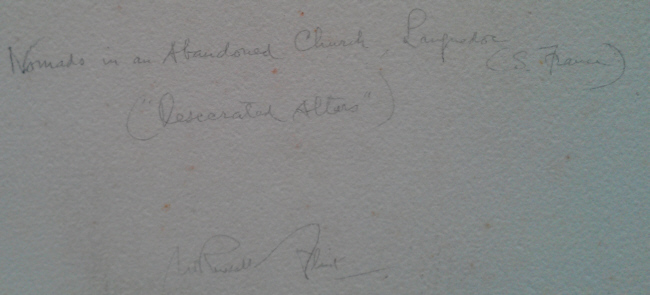 Nomads in an Abandoned Church, Languedoc
(S. France)
("Desecrated Altars")
W Russell Flint